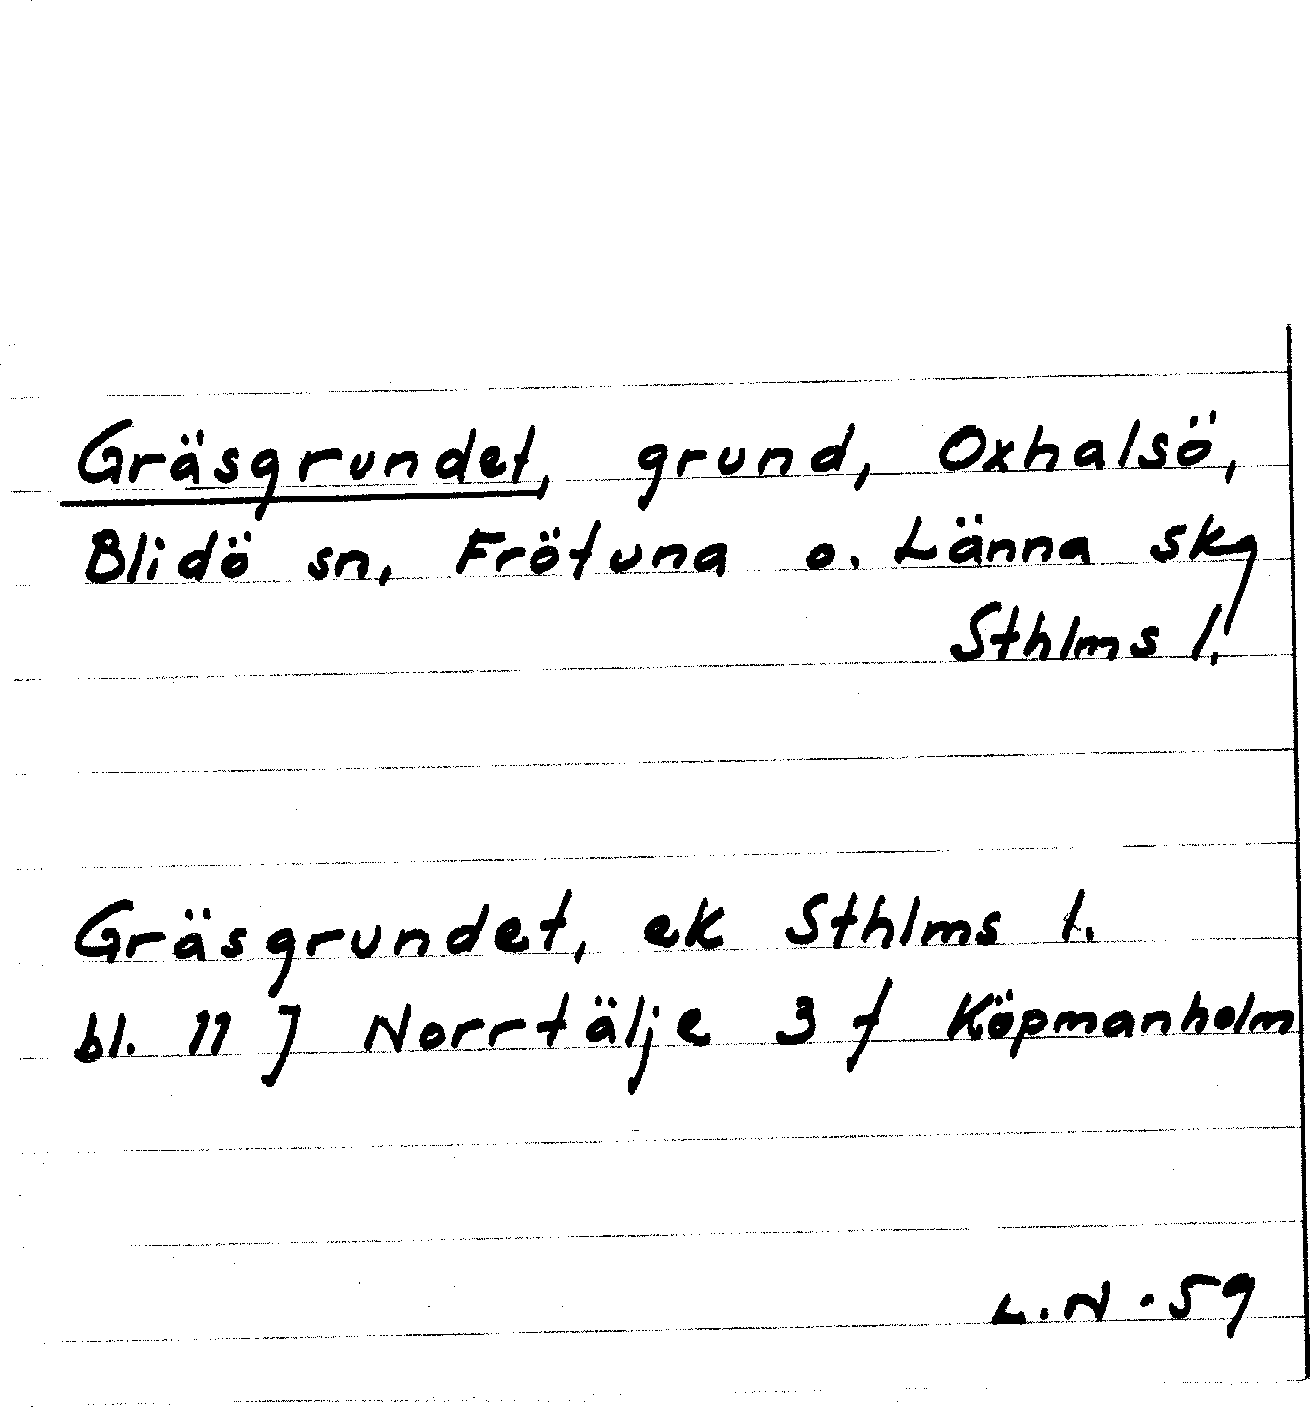 Gräsgrundet, grund, Oxhalsö,
Blidö sn, Frötuna o. Länna skg
Sthlms l.
Gräsgrundet, ek Sthlms l.
bl. 11 J Norrtälje 3 f Köpmanholm
L.N.59